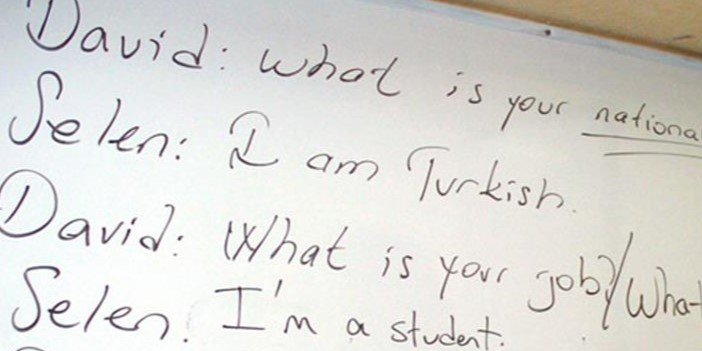 David: What is your nationa
Selen: I am Turkish.
David: What is your job?/What
Selen: I'm a student.